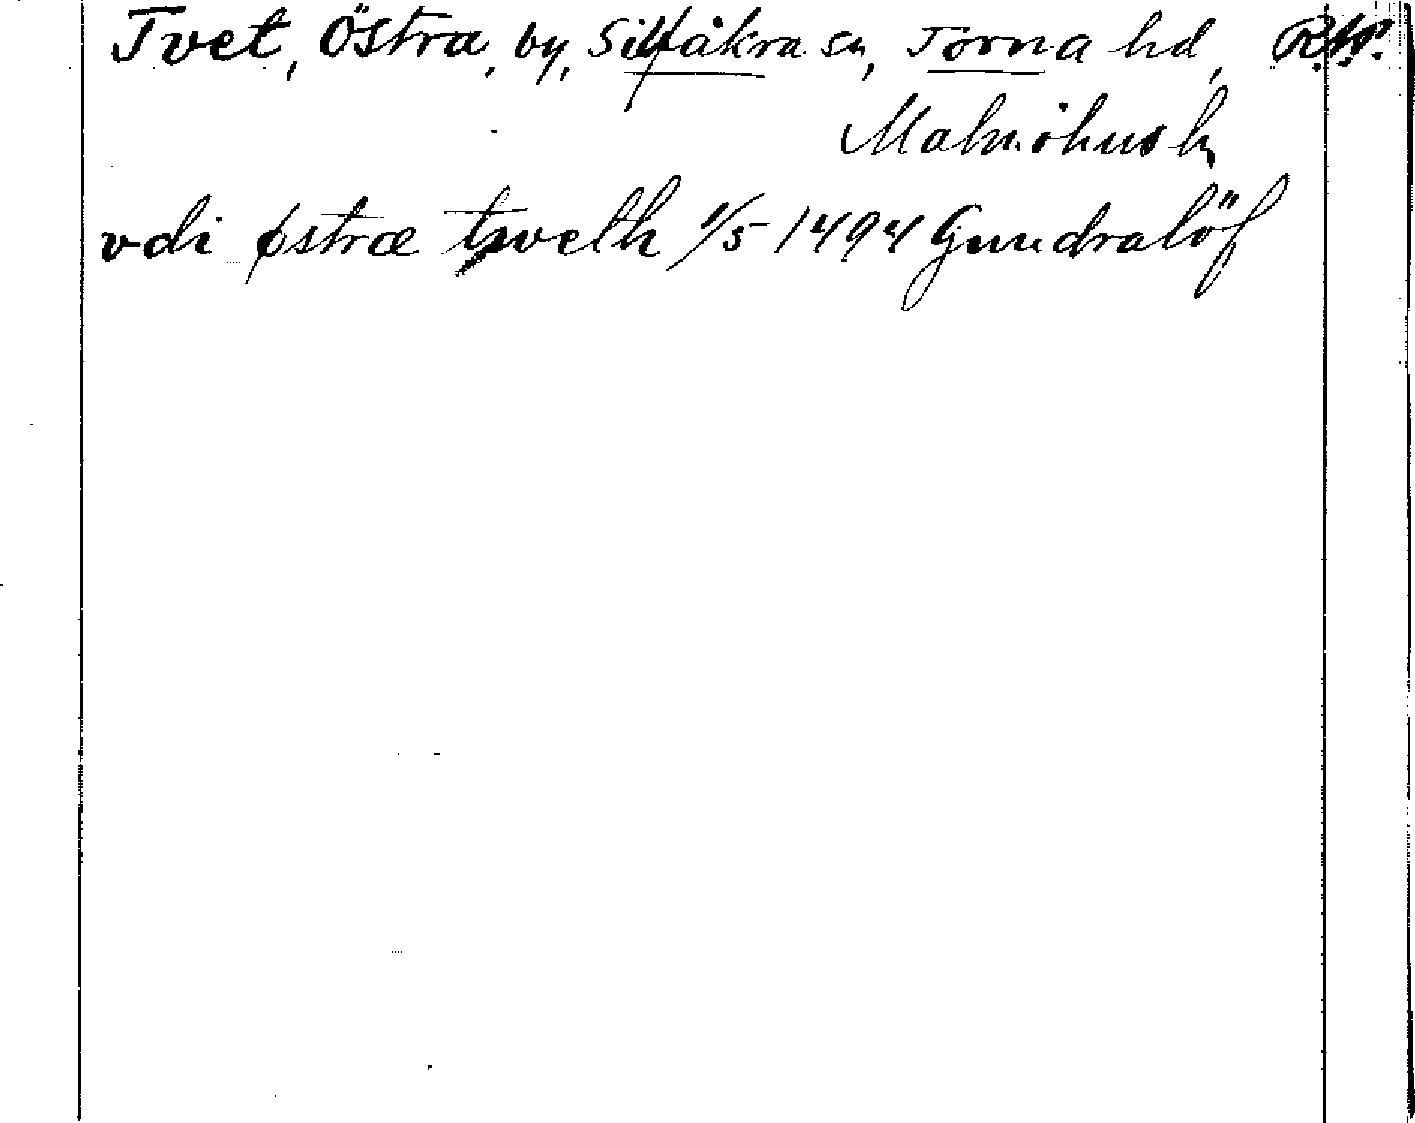 Tvet, Östra, by, Silfåkra sn, Torna hd, R.W.
Malmöhus l.
vdi østræ tweth 1/5 1494 Gundralöf